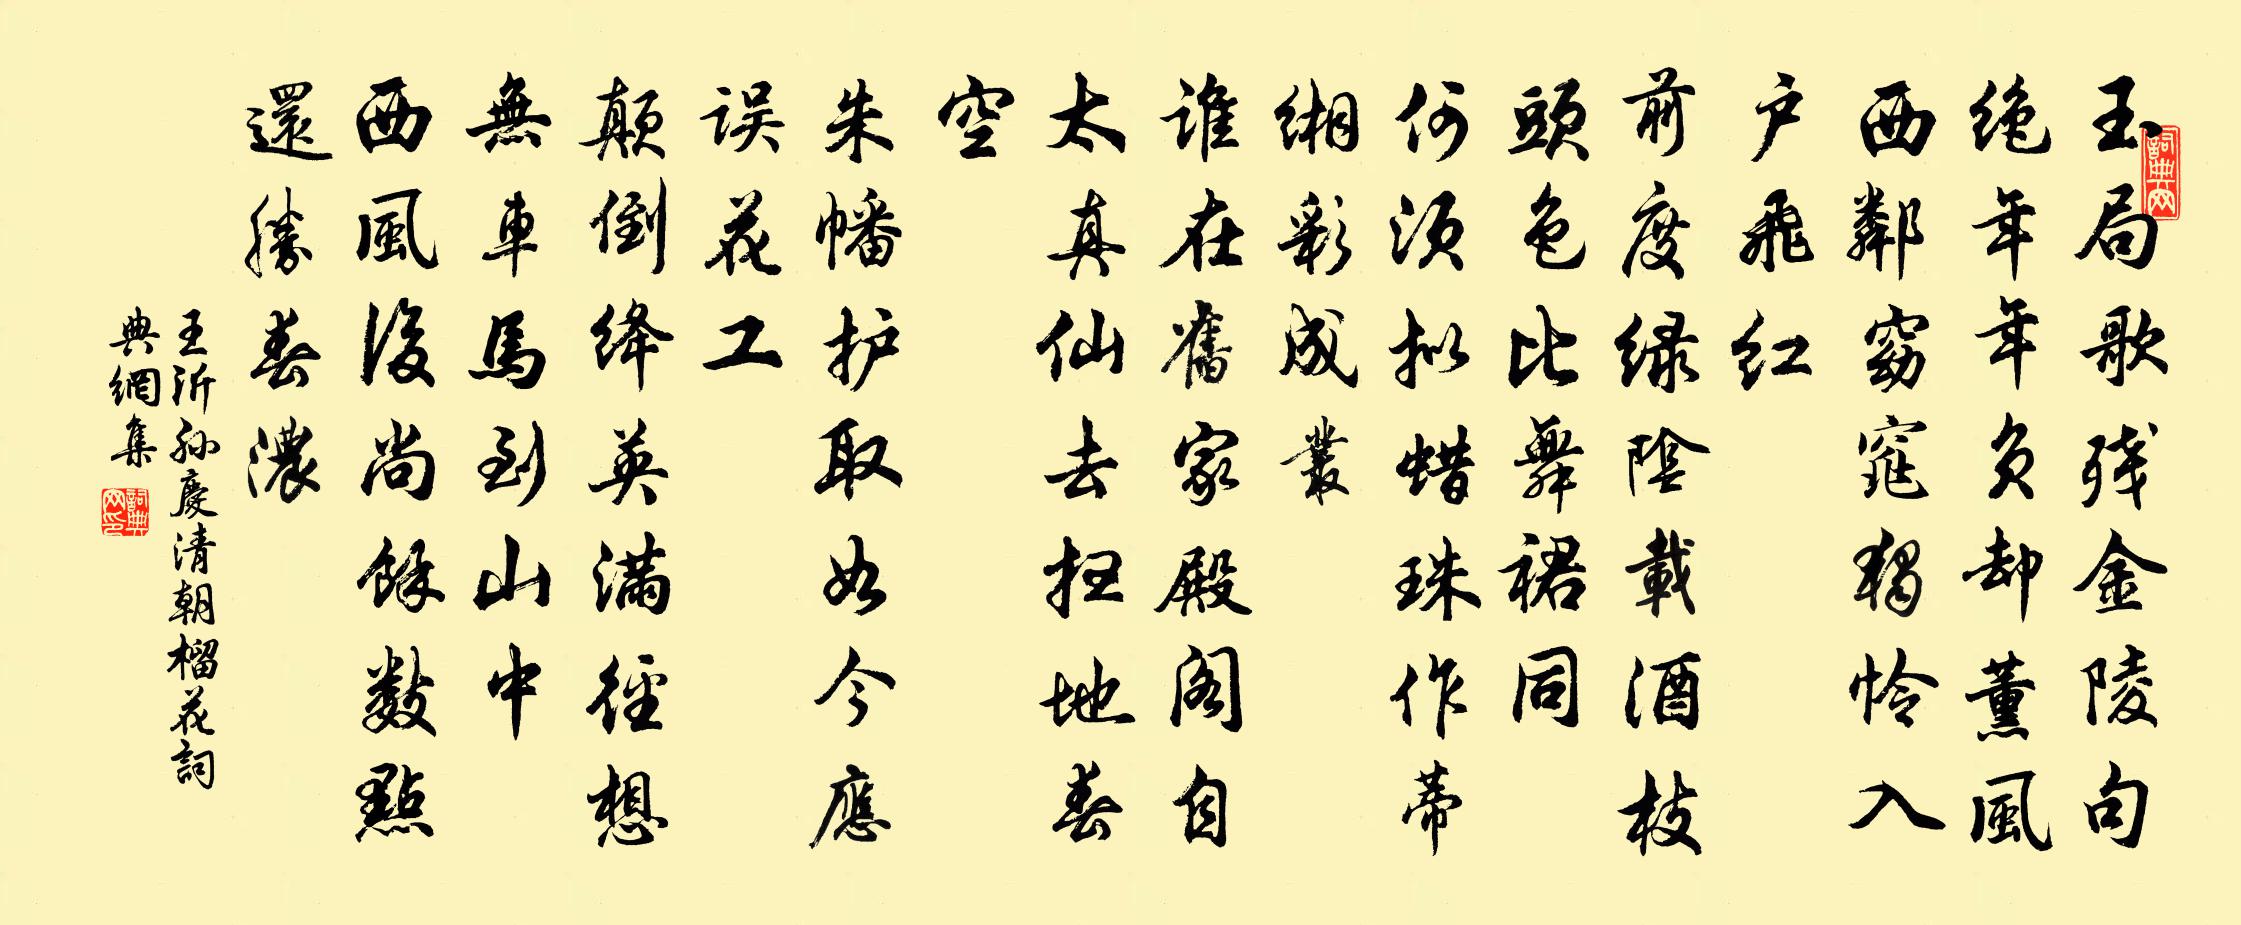 詞典网
玉局歌残金陵句
绝年年负却薰風
西鄰窈窕獨怜入
户飛红
前度绿陰載酒枝
頭色比舞裙同
何须拟蜡珠作蒂
缃彩成叢
谁在舊家殿阁自
太真仙去扫地春
空
朱幡护取如今應
误花工
颠倒绛英满徑想
無車馬到山中
西風後尚餘数點
還勝春濃
王沂孙慶清朝榴花詞
典網集
詞典网印